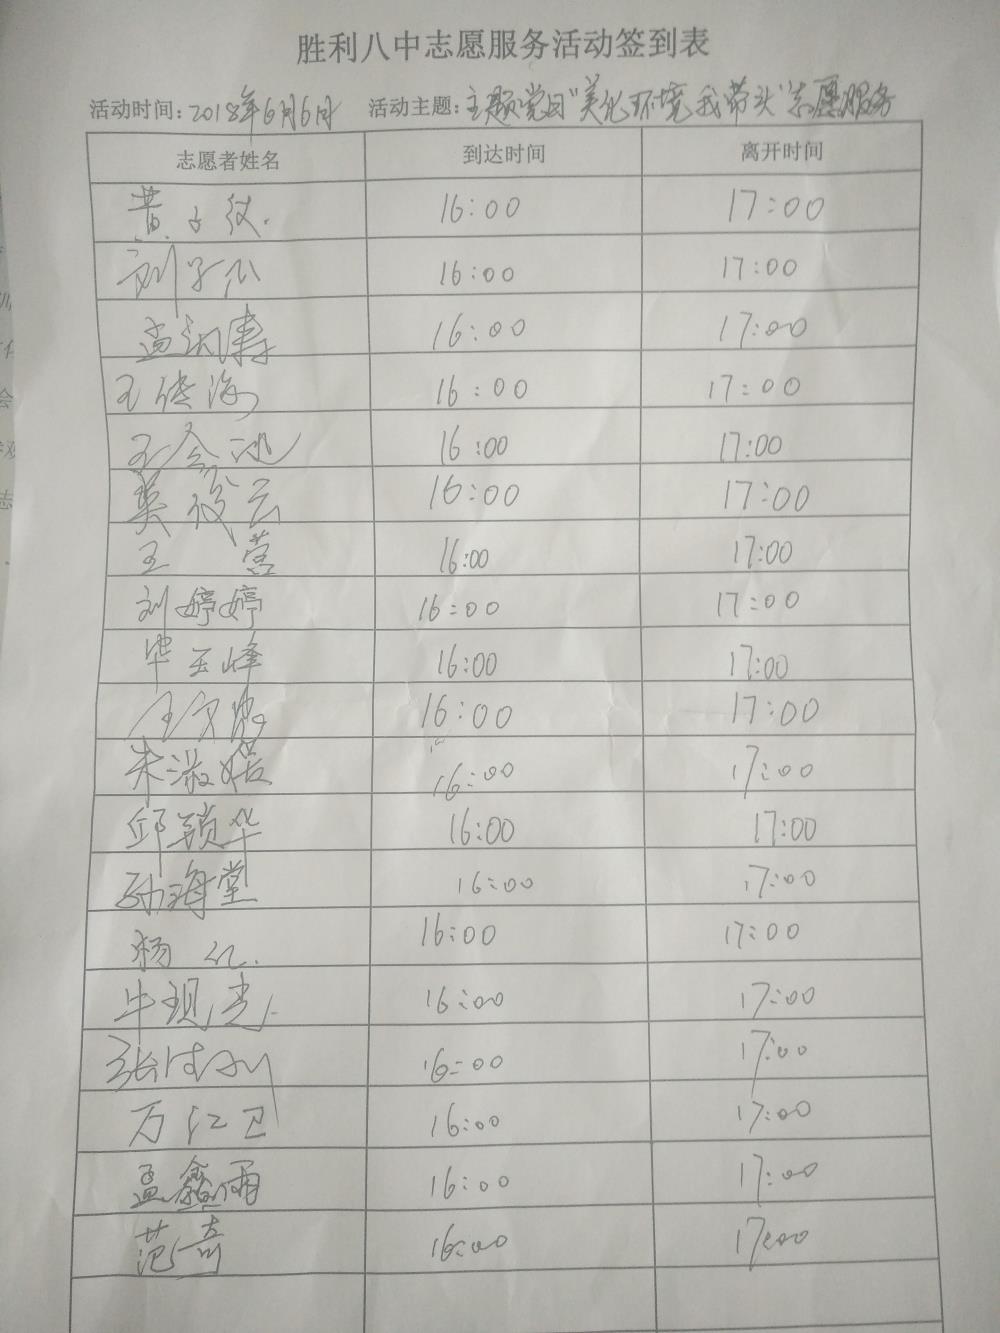 胜利八中志愿服务活动签到表
活动时间：2018年6月6日 活动主题：主题党日"美化环境我带头"志愿服务
志愿者姓名 到达时间 离开时间
黄 16:00 17:00
刘子 16:00 17:00
孟 16:00 17:00
王传海 16:00 17:00
王会 16:00 17:00
樊俊云 16:00 17:00
王 营 16:00 17:00
刘婷婷 16:00 17:00
毕玉峰 16:00 17:00
王 16:00 17:00
朱淑媛 16:00 17:00
邱颖华 16:00 17:00
孙海堂 16:00 17:00
杨红. 16:00 17:00
牛现亮. 16:00 17:00
张 16:00 17:00
万江卫 16:00 17:00
孟鑫雨 16:00 17:00
范奇 16:00 17:00